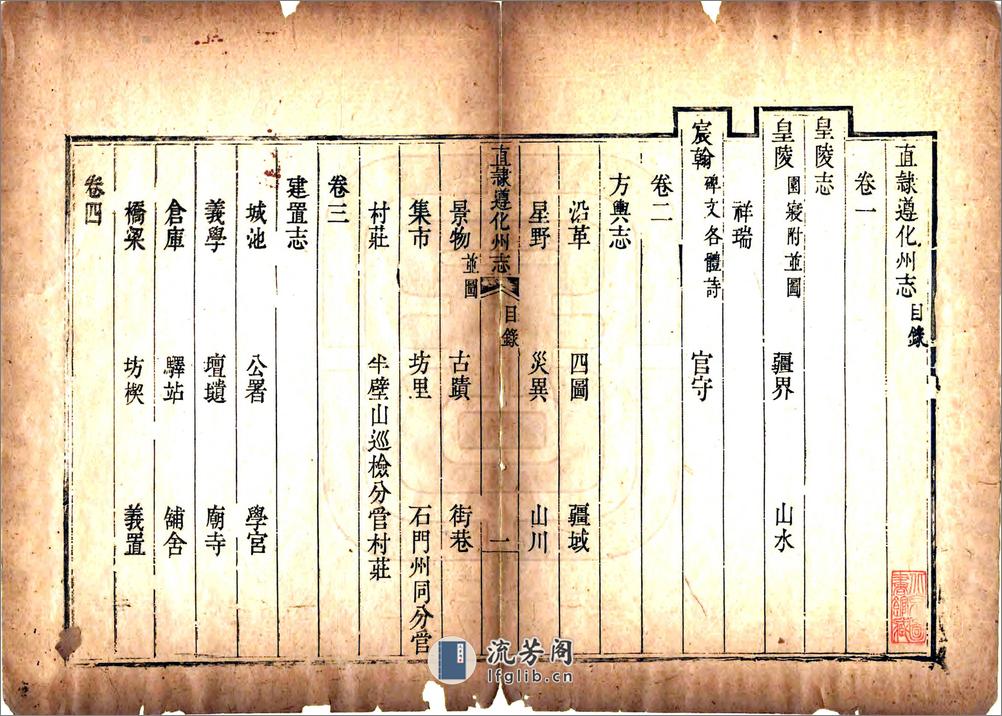 直隷遵化州志 目錄
卷一
皇陵志
皇陵 園寢附並圖 疆界 山水
祥瑞
宸翰 碑文各體詩 官守
卷二
方輿志
沿革 四圖 疆域
星野 災異 山川
直隷遵化州志 目錄 一
景物 並圖 古蹟 街巷
集市 坊里 石門州同分管
村莊 半壁山巡檢分管村莊
卷三
建置志
城池 公署 學宮
義學 壇壝 廟寺
倉庫 驛站 舖舍
橋梁 坊楔 義置
卷四
流芳阁
lfglib.cn